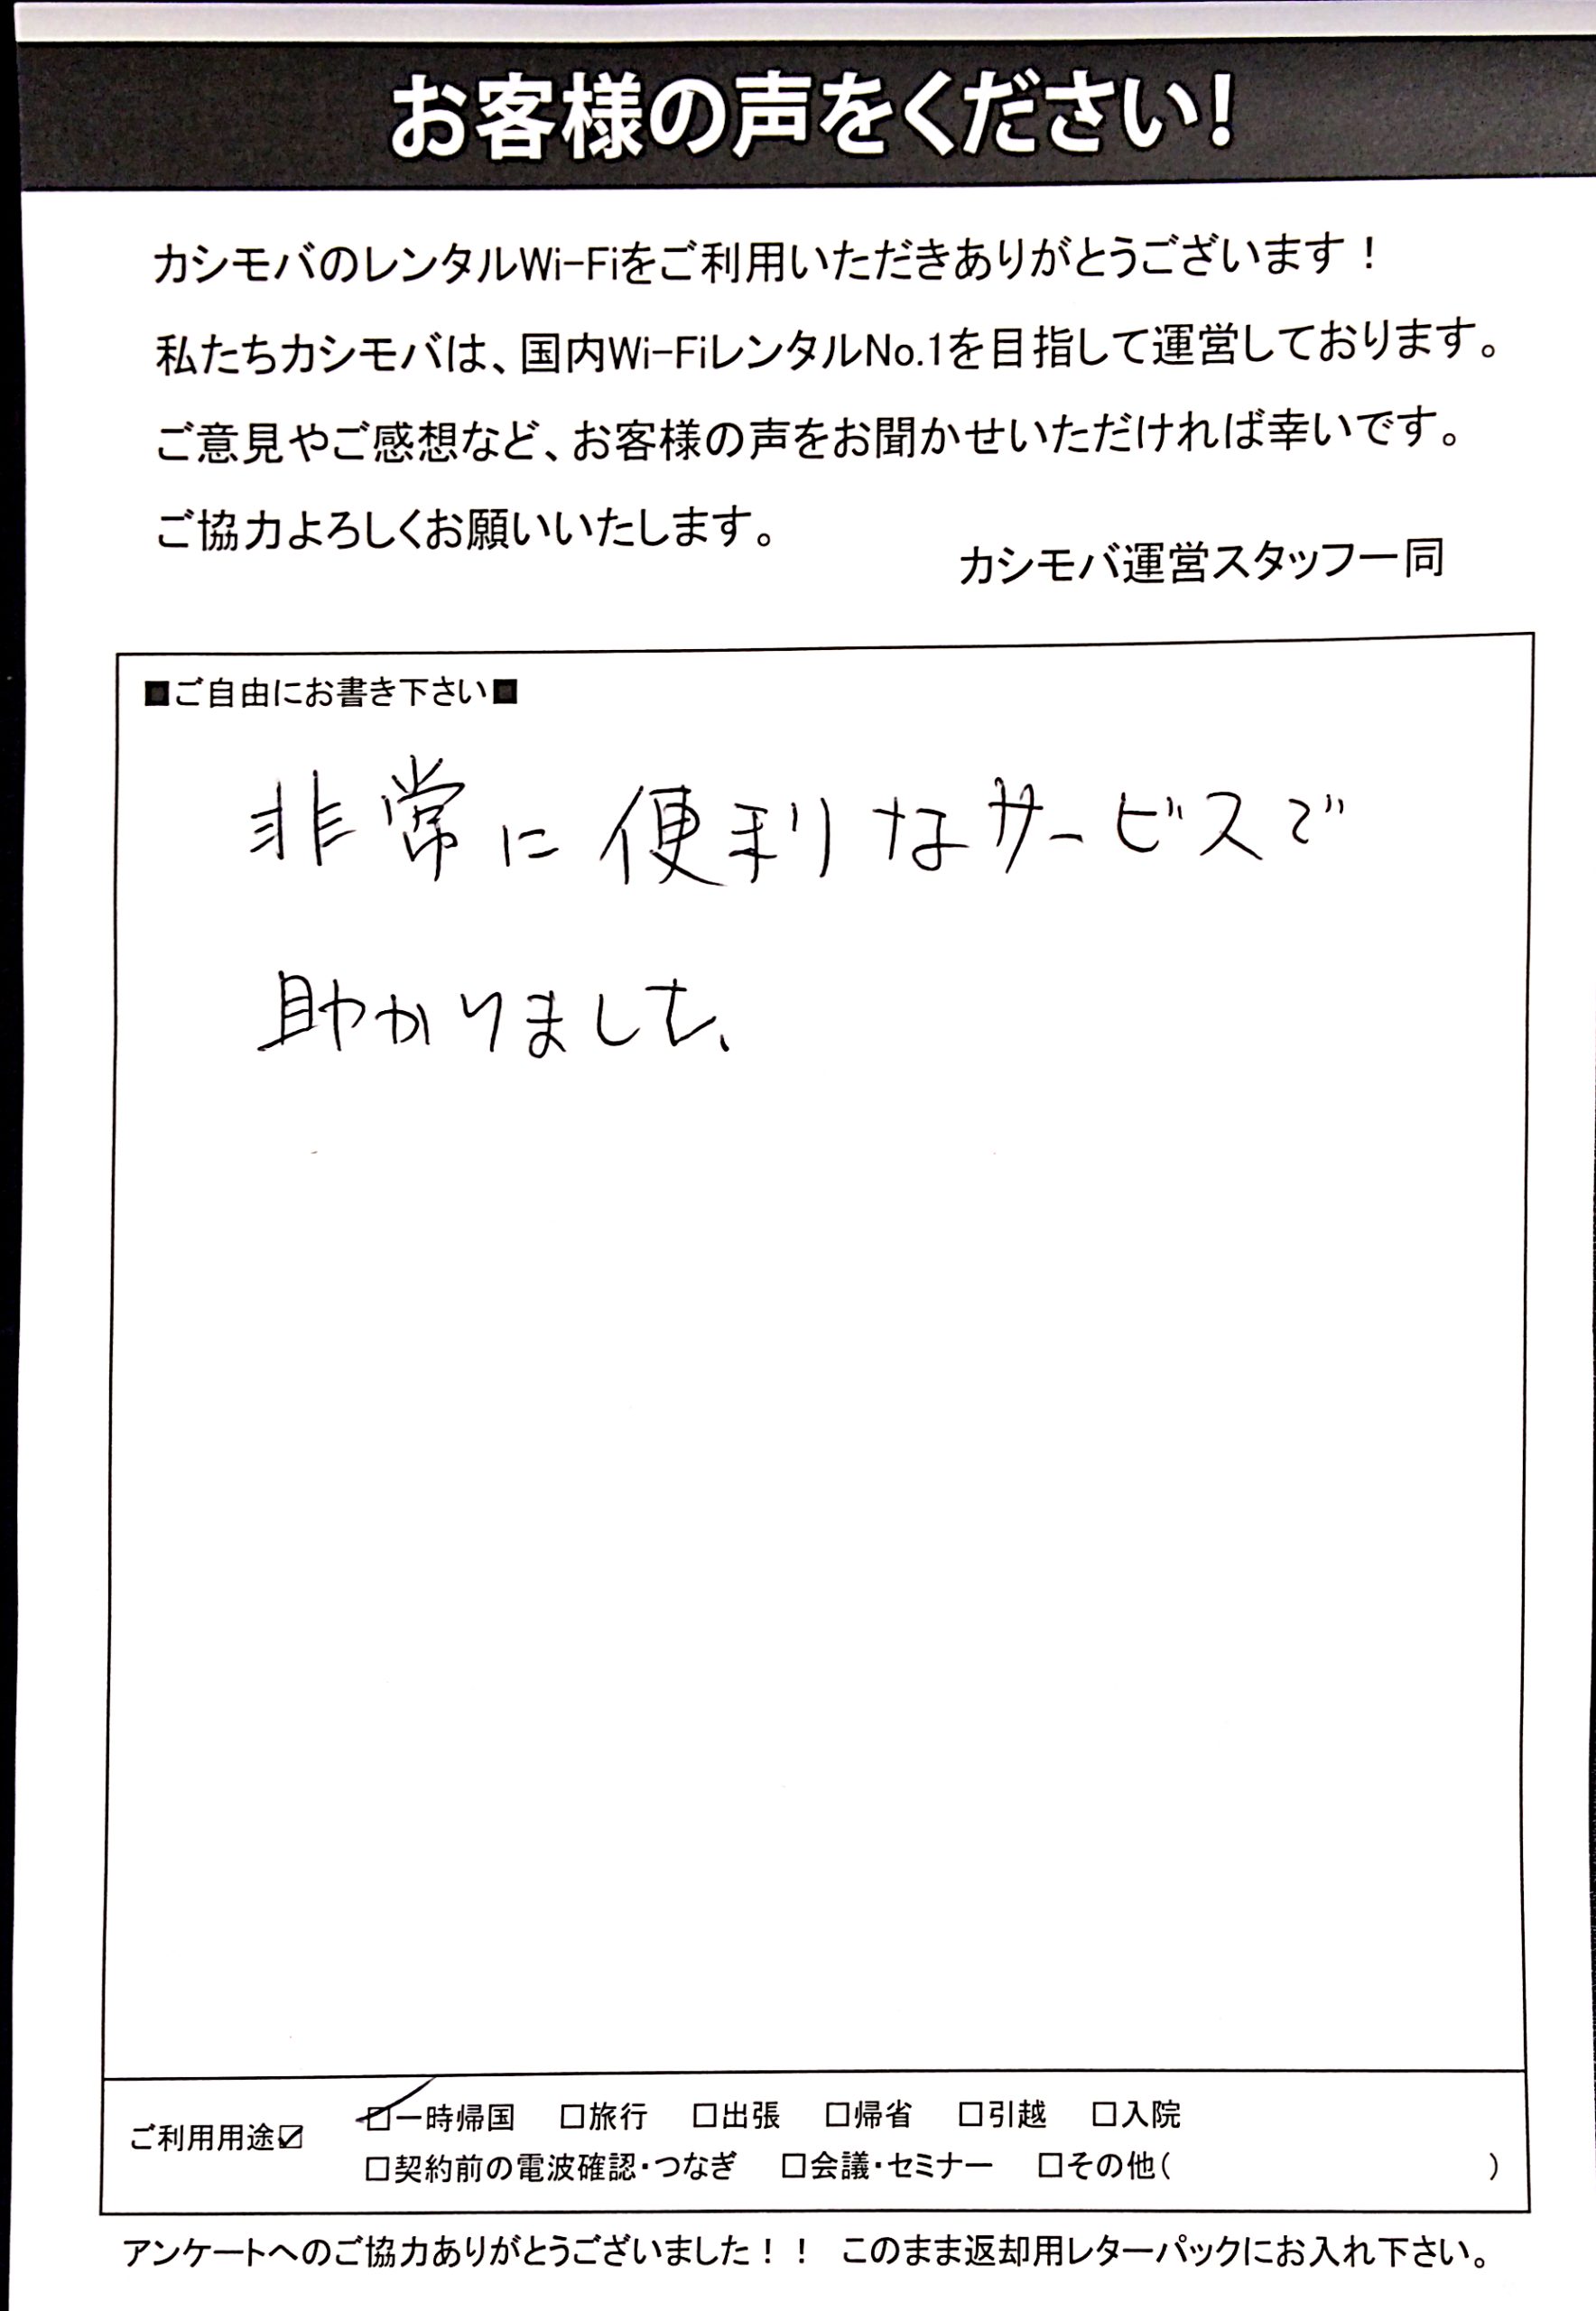 お客様の声をください!
カシモバのレンタルWi-Fiをご利用いただきありがとうございます！
私たちカシモバは、国内Wi-FiレンタルNo.1を目指して運営しております。
ご意見やご感想など、お客様の声をお聞かせいただければ幸いです。
ご協力よろしくお願いいたします。
カシモバ運営スタッフ一同
■ご自由にお書き下さい■
非常に便利なサービスで
助かりました、
ご利用用途☑
☑一時帰国 □旅行 □出張 □帰省 □引越 □入院
□契約前の電波確認・つなぎ □会議・セミナー □その他( )
アンケートへのご協力ありがとうございました！！ このまま返却用レターパックにお入れ下さい。